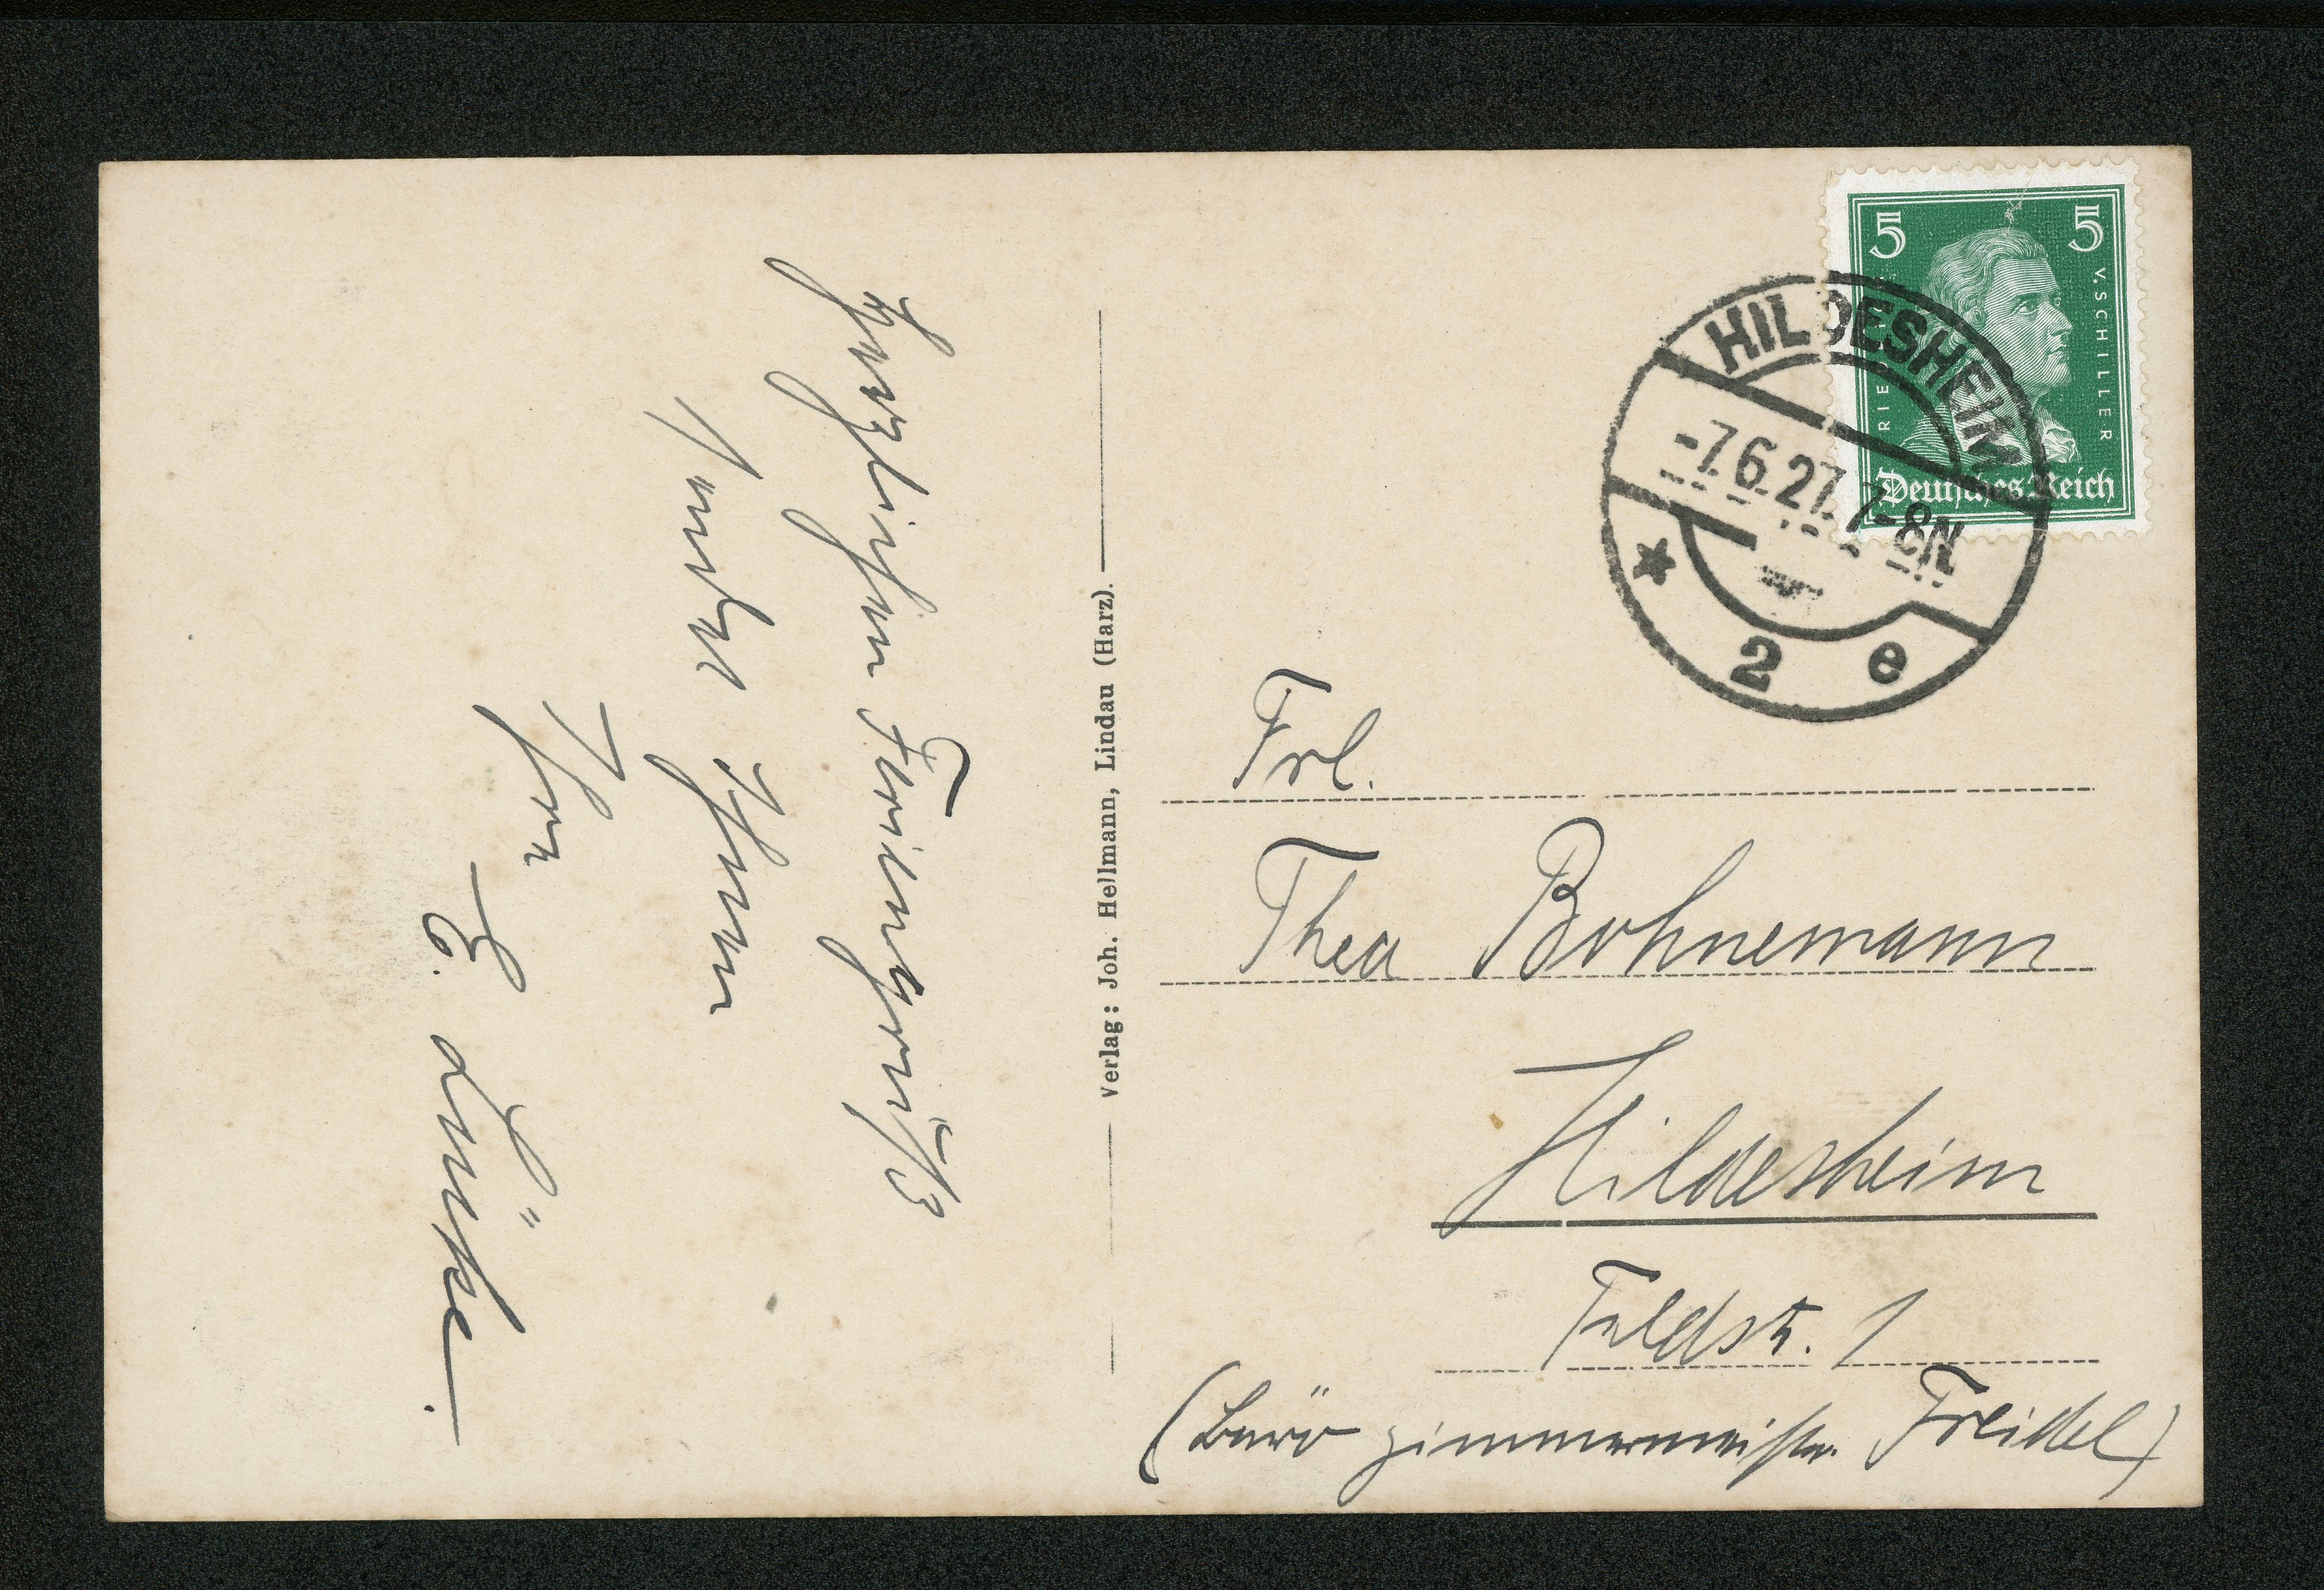 Herzlichen Feriengruß
sendet Ihnen
Ihr
Verlag: Joh. Hellmann, Lindau (Harz).
5 5
V. SCHILLER
Deutsches Reich
HILDESHEIM
-7.6.27. 7-8N
* 2 e
Frl.
Thea Bohnemann
Hildesheim
Feldstr. 1
(Büro Zimmermeister Freidel)